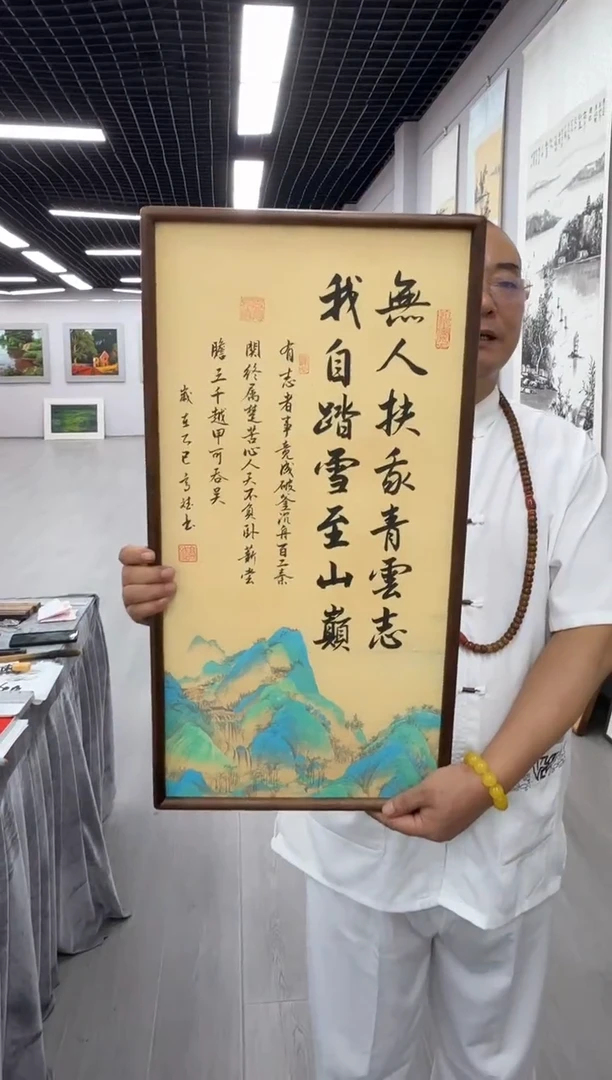 無人扶我青雲志
我自踏雪至山巔
有志者事竟成破釜沉舟百二秦
関終属楚苦心人天不負卧薪尝
膽三千越甲可吞吴
歲在乙巳
書